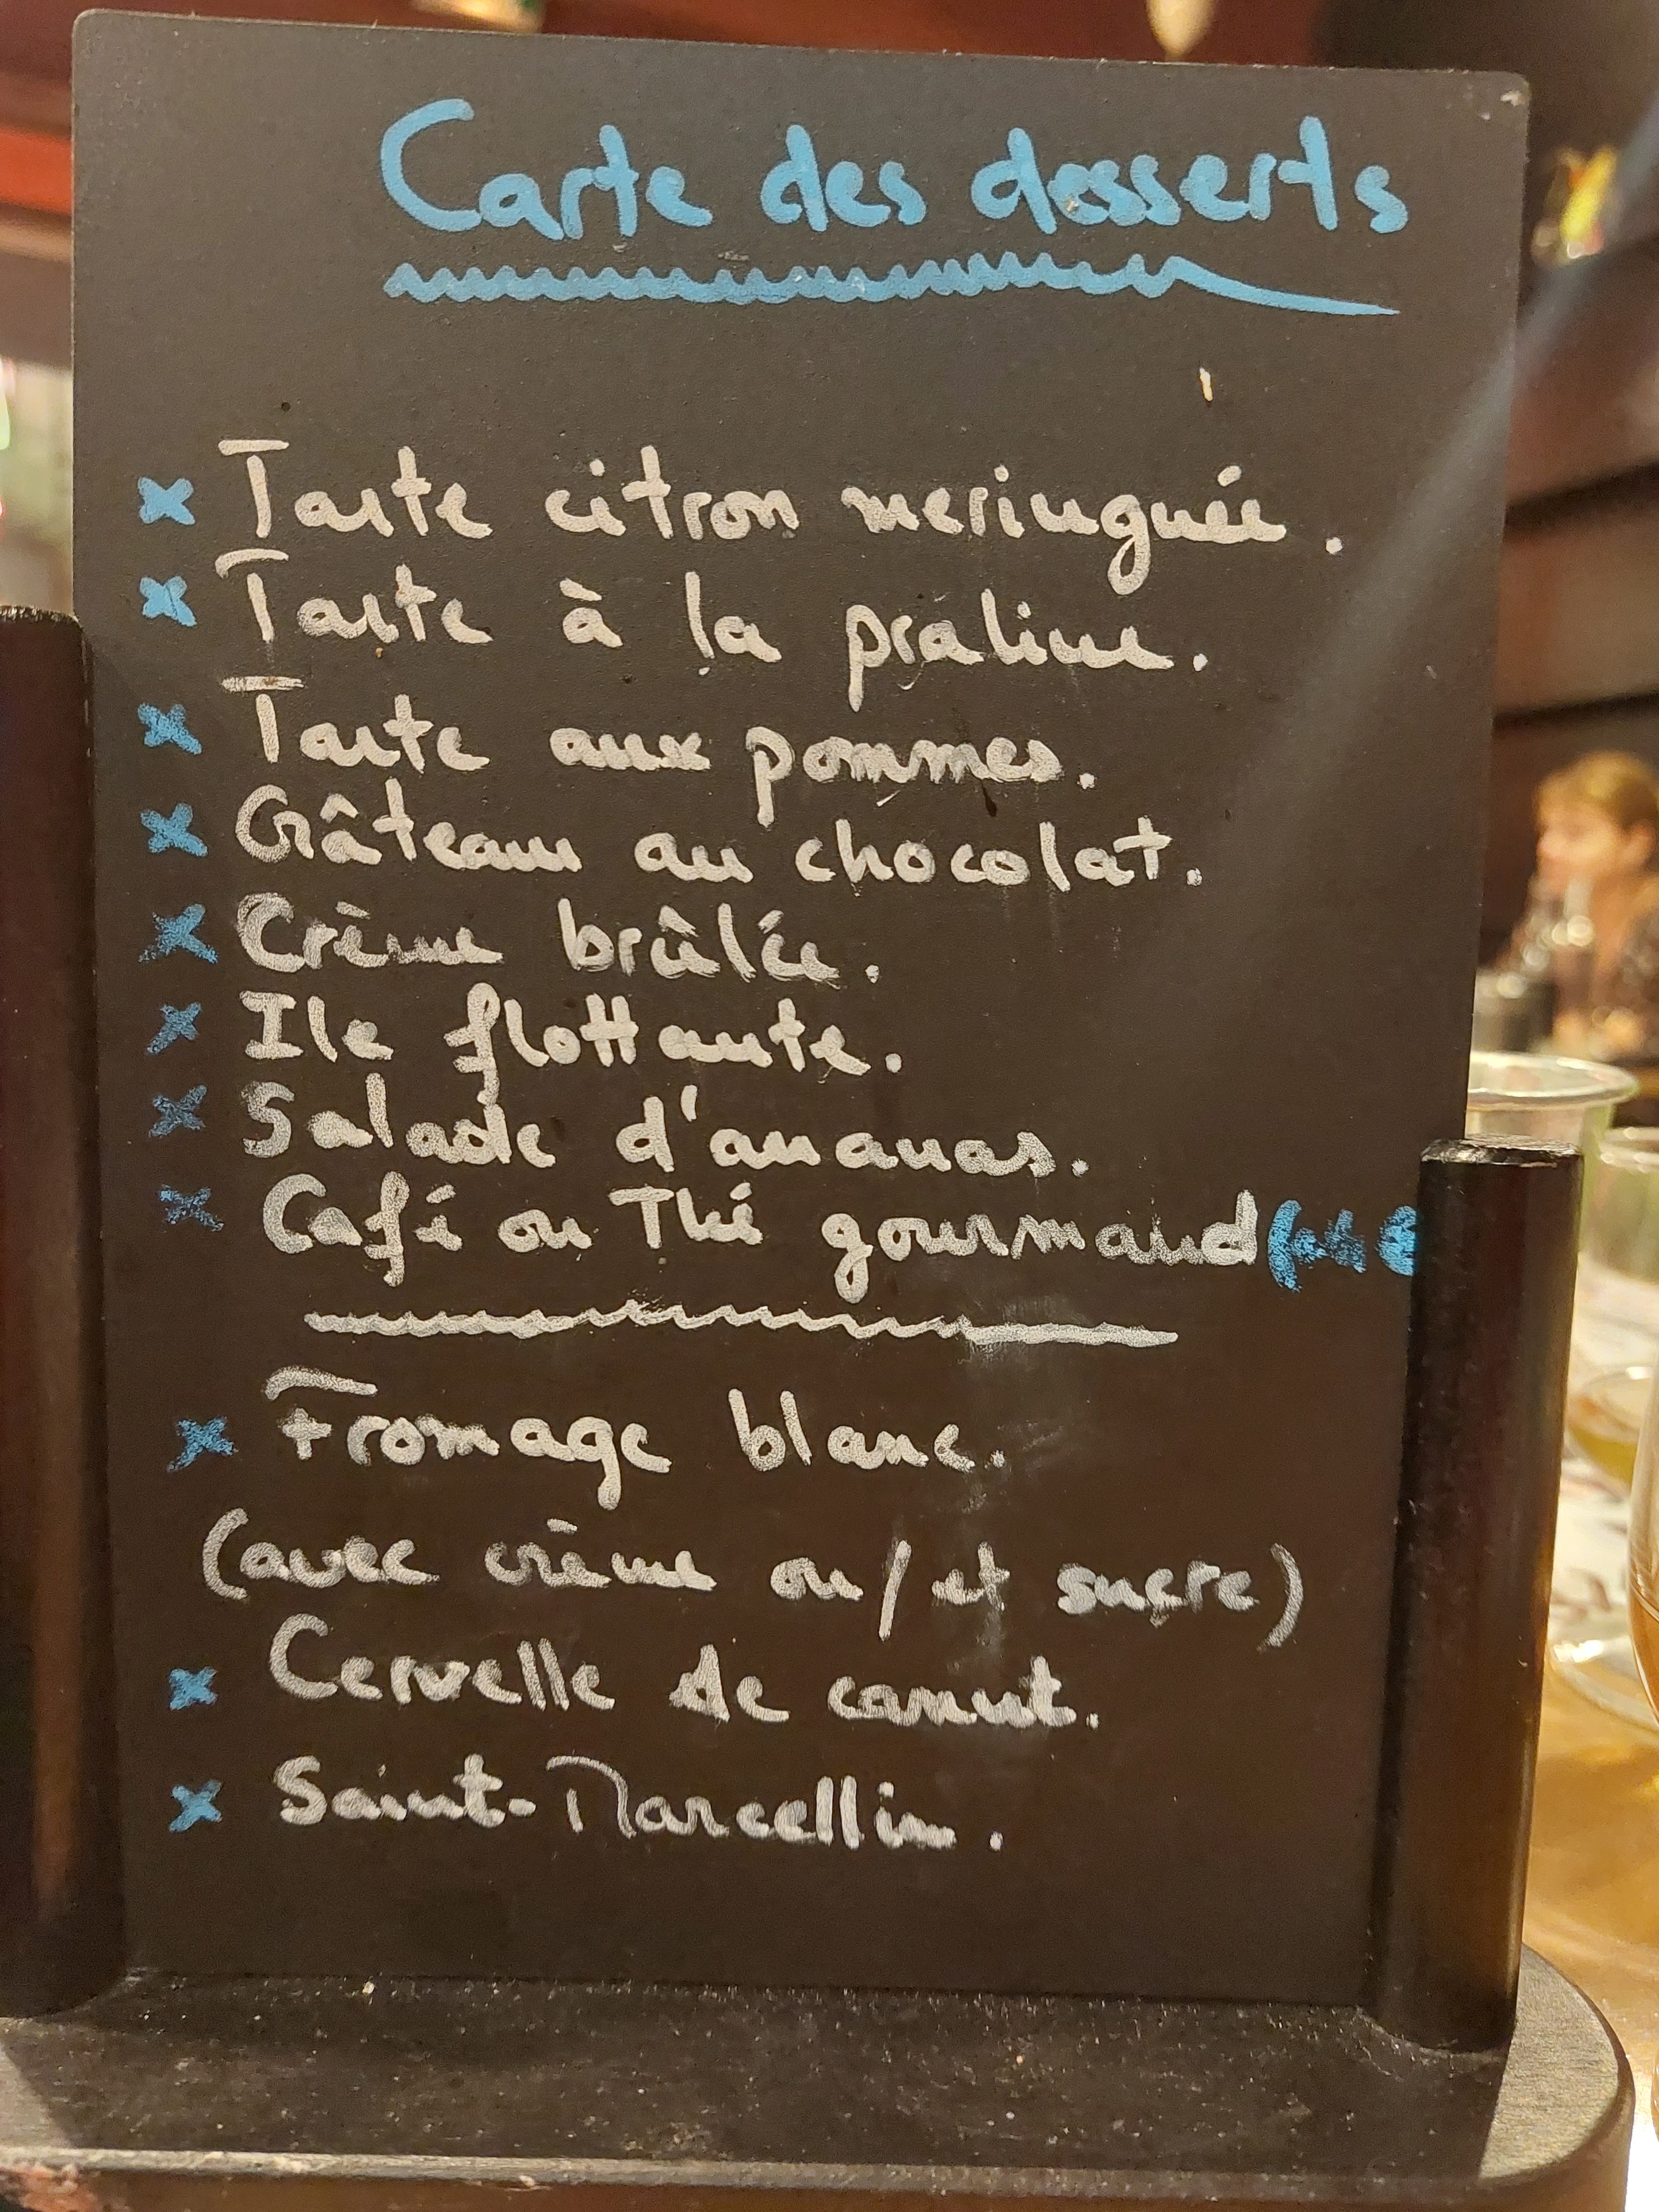 Carte des desserts
x Tarte citron meringuée.
x Tarte à la praline.
x Tarte aux pommes.
x Gâteau au chocolat.
x Crème brûlée.
x Ile flottante.
x Salade d'ananas.
x Café ou Thé gourmand
x Fromage blanc.
(avec crème ou/et sucre)
x Cervelle de canut.
x Saint-Marcellin.